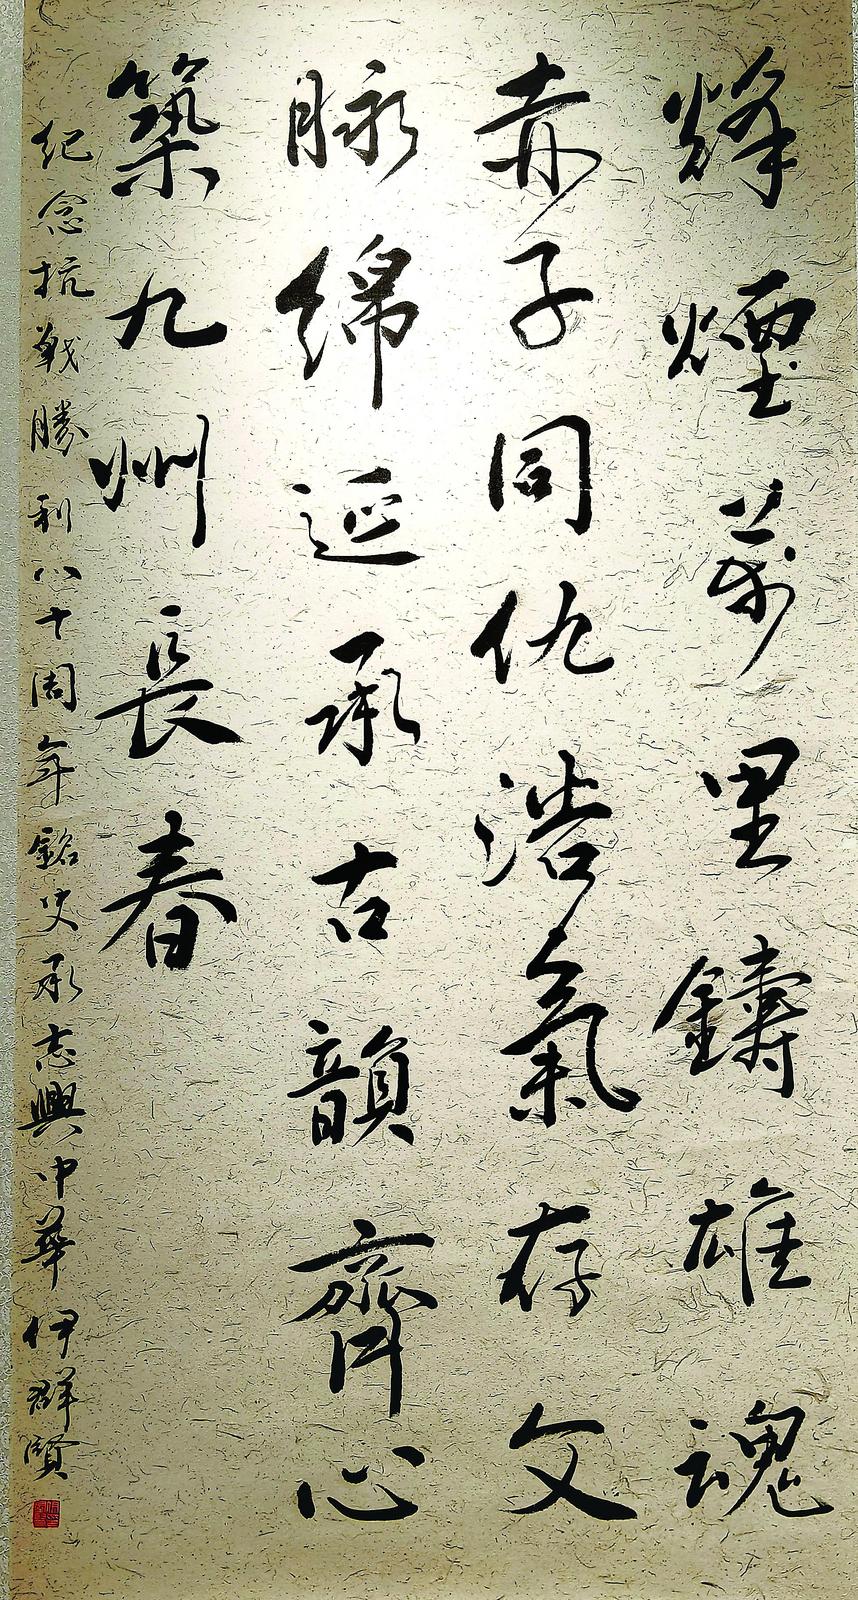 烽煙萬里鑄雄魂
赤子同仇浩氣存文
脉綿延承古韻齊心
築九州長春
纪念抗戰勝利八十周年銘史承志興中華伊群賢